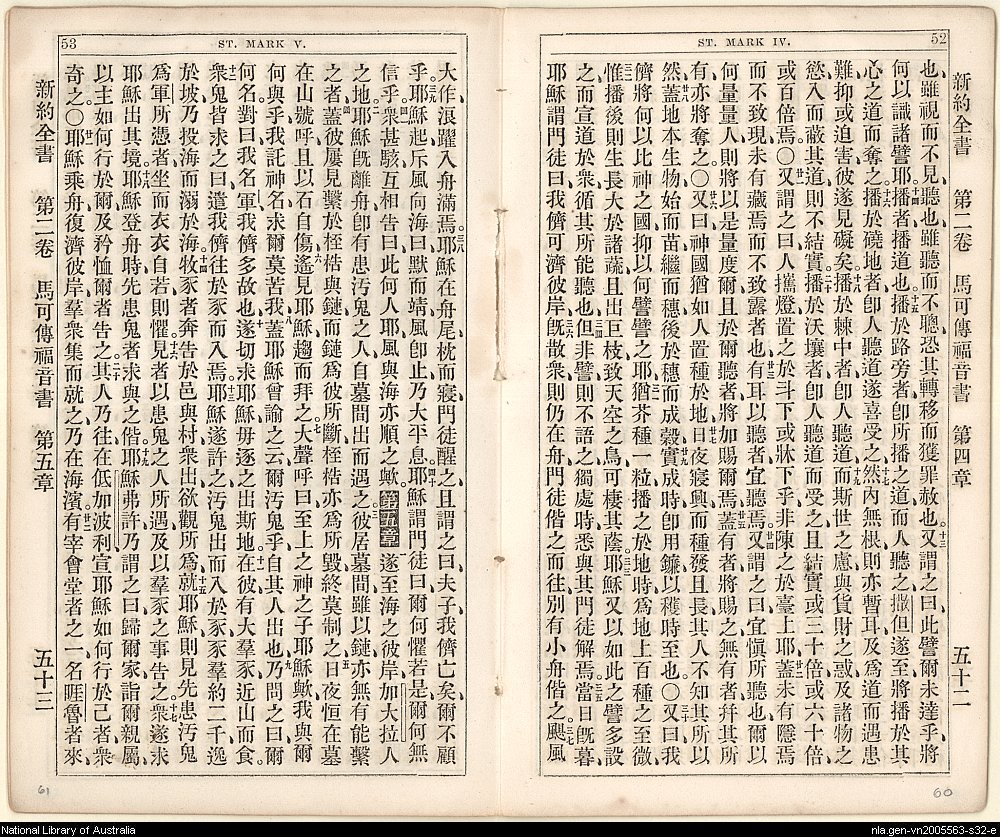 52
ST. MARK IV.
新約全書 第二卷 馬可傳福音書 第四章 五十二
也雖視而不見聽也雖聽而不聰恐其轉移而獲罪赦也十三又謂之曰此譬爾未達乎將
何以識諸譬耶十四播者播道也十五播於路旁者卽所播之道而人聽之撒但遂至將播於其
心之道而奪之十六播於磽地者卽人聽道遂喜受之十七然內無根則亦暫耳及為道而遇患
難抑或迫害彼遂見礙矣十八播於棘中者卽人聽道十九而斯世之慮與貨財之惑及諸物之
慾入而蔽其道則不結實二十播於沃壤者卽人聽道而受之且結實或三十倍或六十倍
或百倍焉〇廿一又謂之曰人攜燈置之於斗下或牀下乎非陳之於臺上耶廿二蓋未有隱焉
而不致現未有藏焉而不致露者也廿三有耳以聽者宜聽焉廿四又謂之曰宜愼所聽也爾以
何量量人則將以是量度爾且於爾聽者將加賜爾焉廿五蓋有者將賜之無有者幷其所
有亦將奪之〇廿六又曰神國猶如人置種於地廿七日夜寢興而種發且長其人不知其所以
然廿八蓋地本生物始而苗繼而穗後於穗而成穀廿九實成時卽用鐮以穫時至也〇三十又曰我
儕將何以比神之國抑以何譬譬之耶三一猶芥種一粒播之於地時為地上百種之至微
三二惟播後則生長大於諸蔬且出巨枝致天空之鳥可棲其蔭三三耶穌又以如此之譬多設
之而宣道於衆循其所能聽也三四但非譬則不語之獨處時悉與其門徒解焉三五當日旣暮
耶穌謂門徒曰我儕可濟彼岸三六旣散衆則仍在舟門徒偕之而往別有小舟偕之三七颶風
53
ST. MARK V.
新約全書 第二卷 馬可傳福音書 第五章 五十三
大作浪躍入舟滿焉三八耶穌在舟尾枕而寢門徒醒之且謂之曰夫子我儕亡矣爾不顧
乎三九耶穌起斥風向海曰默而靖風卽止乃大平息四十耶穌謂門徒曰爾何懼若是爾何無
信乎四一衆甚駭互相告曰此何人耶風與海亦順之歟第五章一遂至海之彼岸加大拉人
之地二耶穌旣離舟卽有患汚鬼之人自墓間出而遇之三彼居墓間雖以鏈亦無有能繫
之者四蓋彼屢見繫於桎梏與鏈而鏈為彼所斷桎梏亦為所毀終莫制之五日夜恒在墓
在山號呼且以石自傷六遙見耶穌趨而拜之七大聲呼曰至上之神之子耶穌歟我與爾
何與乎我託神名求爾莫苦我八蓋耶穌曾諭之云爾汚鬼乎自其人出也九乃問之曰爾
何名對曰我名軍我儕多故也十遂切求耶穌毋逐之出斯地十一在彼有大羣豕近山而食
十二衆鬼皆求之曰遣我儕往於豕而入焉十三耶穌遂許之汚鬼出而入於豕豕羣約二千逸
於坡乃投海而溺於海十四牧豕者奔告於邑與村衆出欲觀所為十五就耶穌則見先患汚鬼
為軍所憑者坐而衣衣自若則懼十六見者以患鬼之人所遇及以羣豕之事告之十七衆遂求
耶穌出其境十八耶穌登舟時先患鬼者求與之偕十九耶穌弗許乃謂之曰歸爾家詣爾親屬
以主如何行於爾及矜恤爾者告之二十其人乃往在低加波利宣耶穌如何行於己者衆
奇之〇廿一耶穌乘舟復濟彼岸羣衆集而就之乃在海濱廿二有宰會堂者之一名睚魯者來
61
60
National Library of Australia
nla.gen-vn2005563-s32-e